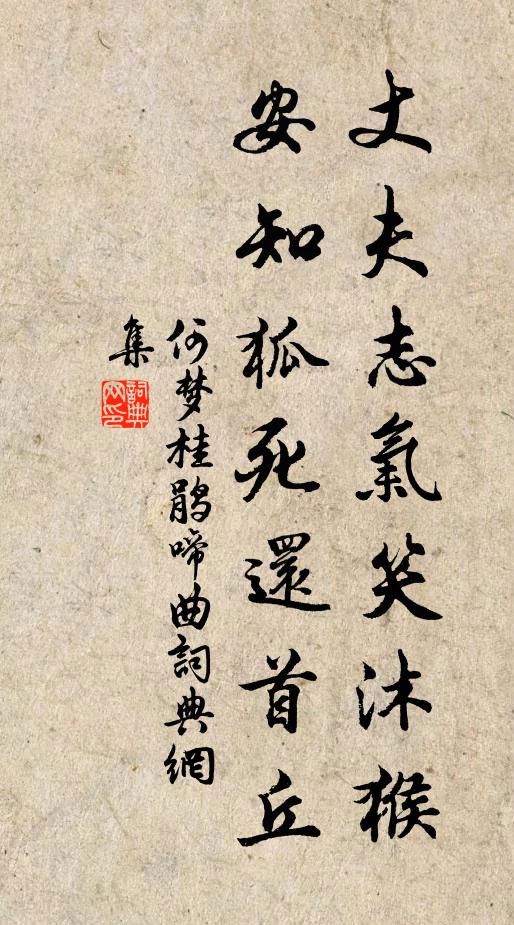 丈夫志氣笑沐猴
安知狐死還首丘
何梦桂鹃啼曲詞典網
集
詞典
网印